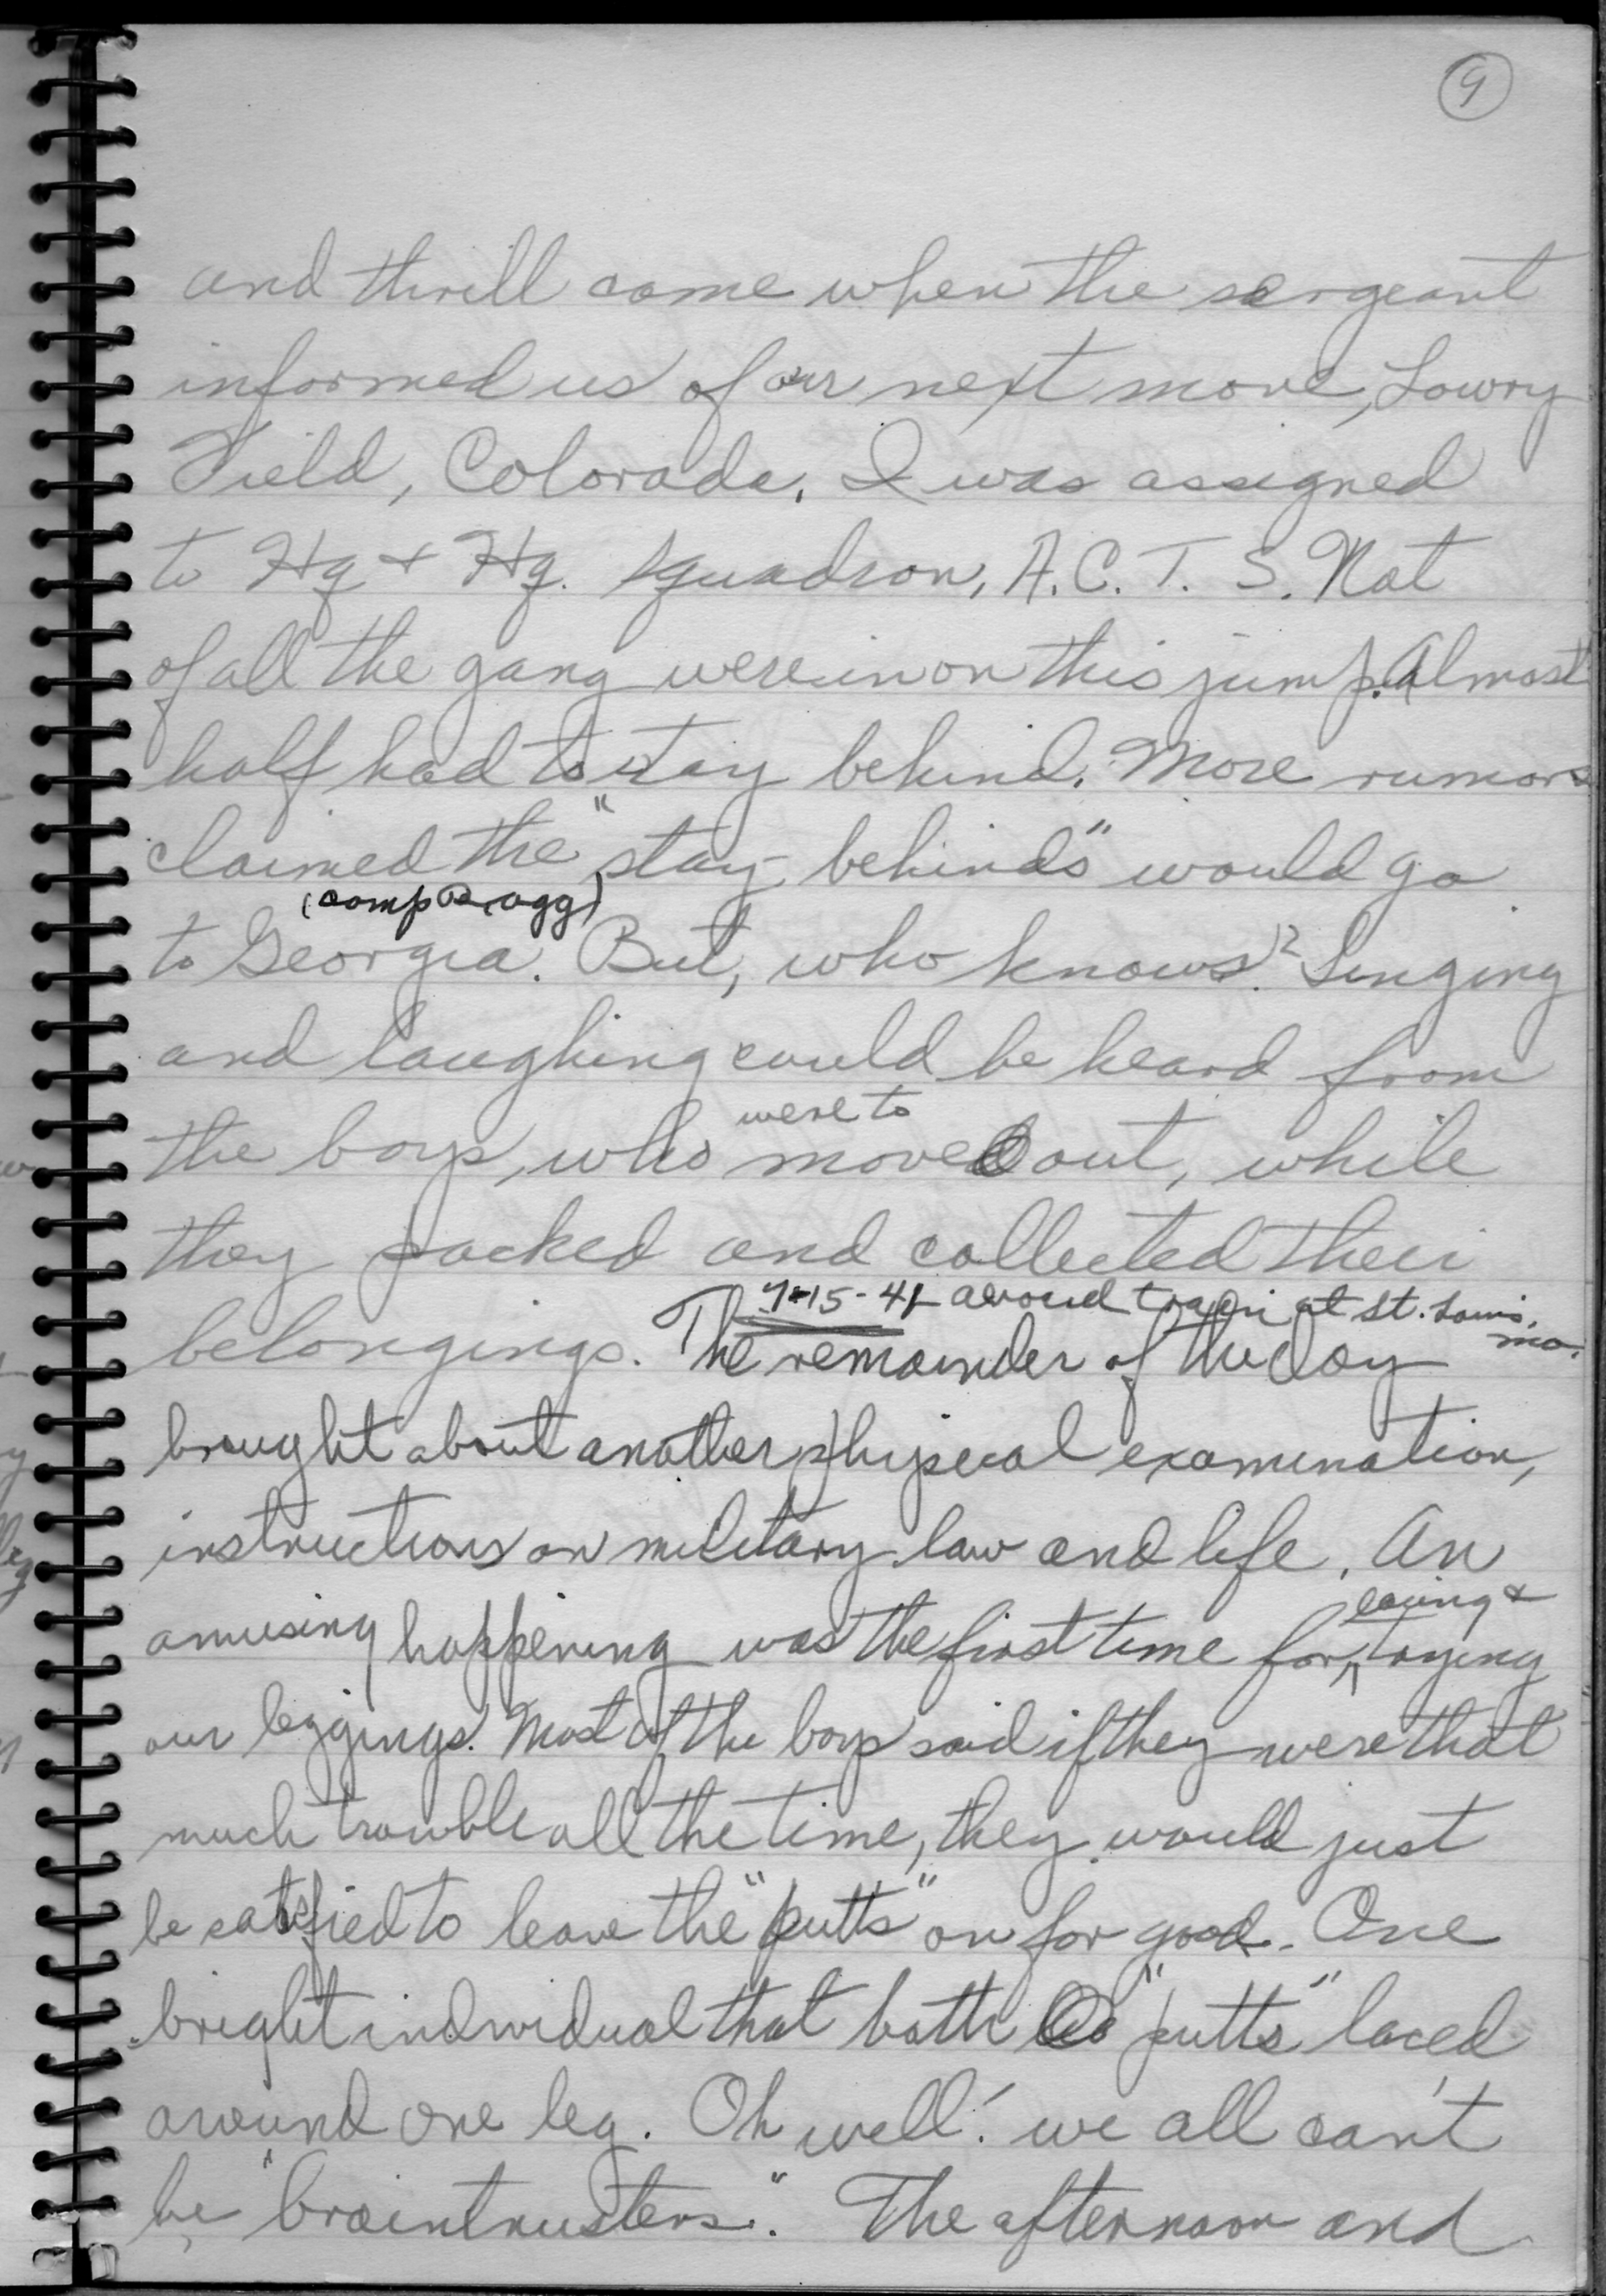 9
and thrill came when the sergeant
informed us of our next move, Lowry
Field, Colorado. I was assigned
to Hq + Hq. Squadron, A. C. T. S. Not
of all the gang were in on this jump. Almost
half had to stay behind. More rumors
claimed the "stay behinds" would go
(Camp Bragg)
to Georgia. But, who knows? Singing
and laughing could be heard from
were to
the boys, who move out, while
they packed and collected their
7-15-41 aboard train at St. Louis,
mo.
belongings. The remainder of the day
brought about another physical examination,
instructions on military law and life. An
lacing +
amusing happening was the first time for trying
our leggings. Most of the boys said if they were that
much trouble all the time, they would just
be satisfied to leave the "putts" on for good. One
bright individual that both "putts" laced
around one leg. Oh well! we all can't
be "braintrusters." The afternoon and